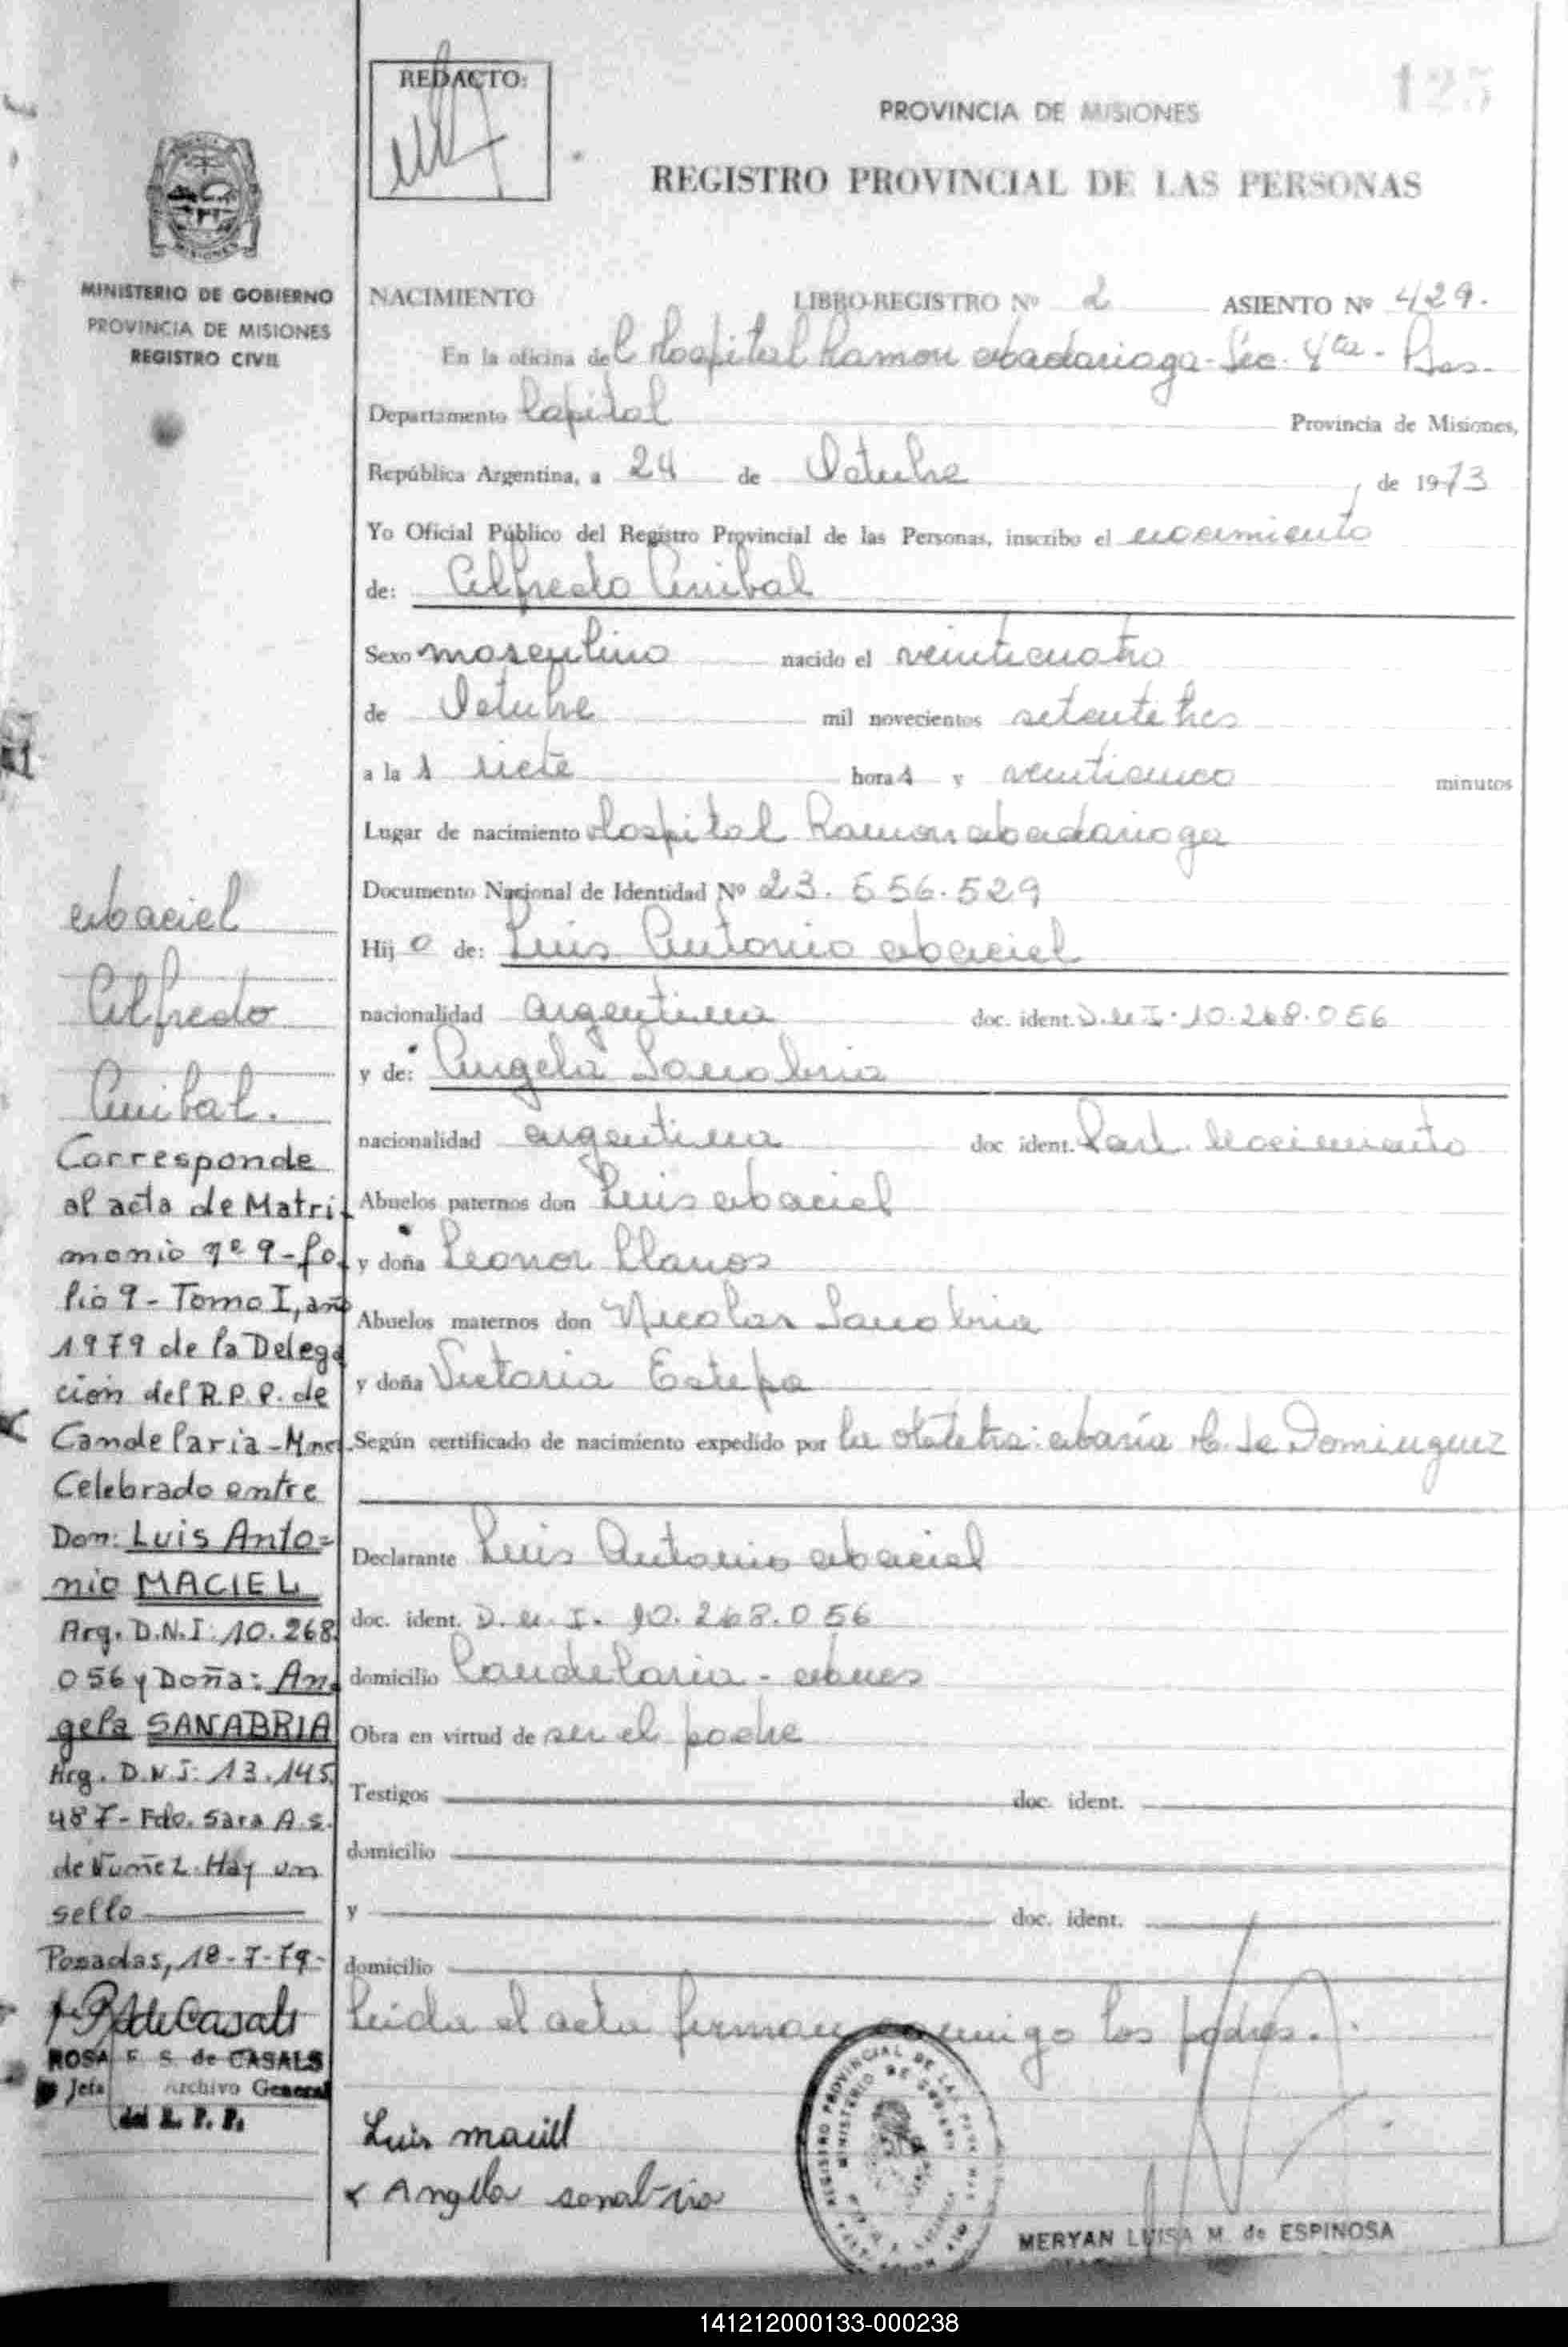 REDACTO:
125
PROVINCIA DE MISIONES
REGISTRO PROVINCIAL DE LAS PERSONAS
MINISTERIO DE GOBIERNO
PROVINCIA DE MISIONES
REGISTRO CIVIL
NACIMIENTO LIBRO-REGISTRO Nº 2 ASIENTO Nº 429.
En la oficina del Hospital Ramon Madariaga - Sec. 4ta - Pdas.
Departamento Capital Provincia de Misiones,
República Argentina, a 24 de Octubre de 1973
Yo Oficial Público del Registro Provincial de las Personas, inscribo el nacimiento
de: Alfredo Anibal
Sexo masculino nacido el veinticuatro
de Octubre mil novecientos setentitres
a las siete horas y veinticinco minutos
Lugar de nacimiento Hospital Ramon Madariaga
Documento Nacional de Identidad Nº 23.556.529
Hijo de: Luis Antonio Maciel
nacionalidad argentina doc. ident. D.N.I. 10.268.056
y de: Angela Sanabria
nacionalidad argentina doc ident. Part. Nacimiento
Abuelos paternos don Luis Maciel
y doña Leonor Llanos
Abuelos maternos don Nicolas Sanabria
y doña Victoria Estepa
Según certificado de nacimiento expedido por la Obstetra: María H. de Dominguez
Declarante Luis Antonio Maciel
doc. ident. D.N.I. 10.268.056
domicilio Candelaria - Mnes
Obra en virtud de ser el padre
Testigos doc. ident.
domicilio
y doc. ident.
domicilio
Leida el acta firman conmigo los padres.
Luis maciel
x Angela sanabria
REGISTRO PROVINCIAL DE LAS PERSONAS
MINISTERIO DE GOBIERNO
MERYAN LUISA M. de ESPINOSA
Maciel
Alfredo
Anibal.
Corresponde
al acta de Matri
monio nº 9 - fo
lio 9 - Tomo I, año
1979 de la Delega
ción del R.P.P. de
Candelaria - Mnes.
Celebrado entre
Don: Luis Anto=
nio MACIEL
Arg. D.N.I: 10.268.
056 y Doña: An
gela SANABRIA
Arg. D.N.I: 13.145.
487 - Fdo. Sara A. S.
de Nuñez. Hay un
sello
Posadas, 18-7-79-
R de Casals
ROSA F. S. de CASALS
Jefa Archivo General
del R. P. P.
141212000133-000238